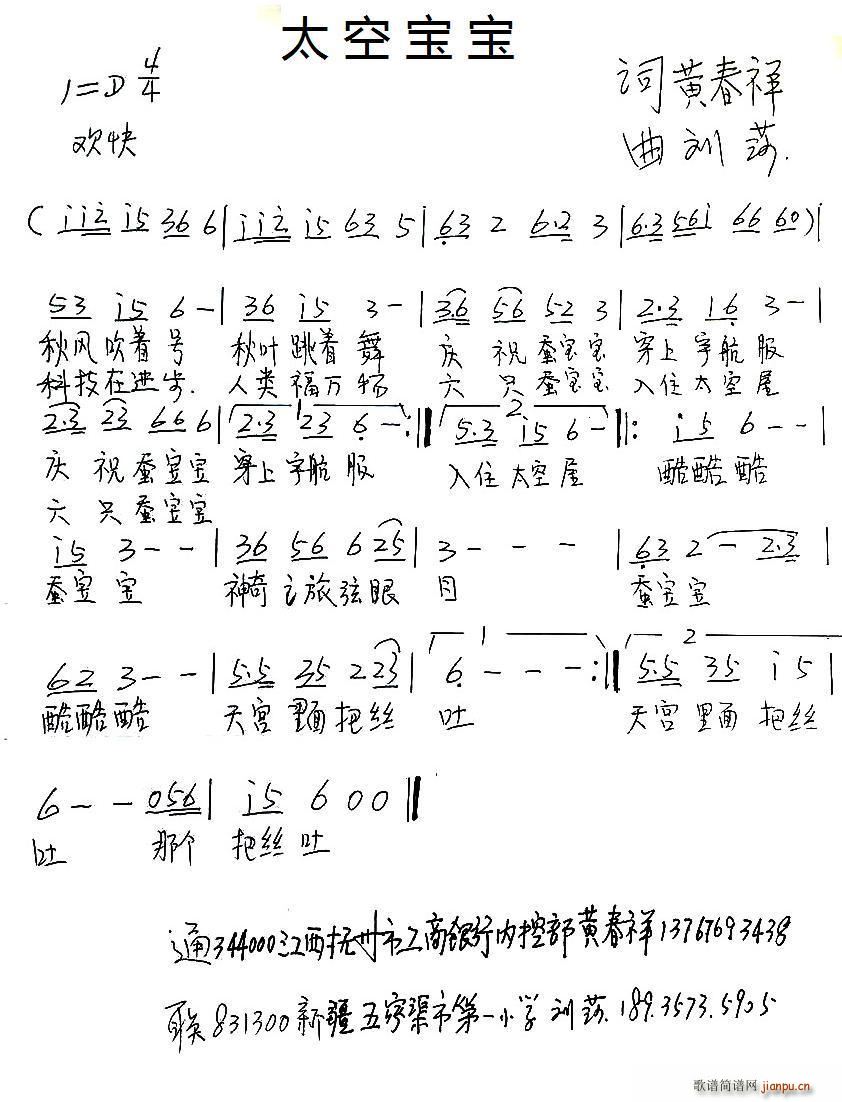 太空宝宝
1=D 4/4
词 黄春祥
欢快
曲 刘莎.
( i i 2 i 5 3 6 6 | i i 2 i 5 6 3 5 | 6 3 2 6·2 3 | 6·3 5 6 i 6 6 6 0 ) |
5 3 i 5 6 - | 3 6 i 5 3 - | 3 6 5 6 5 2 3 | 2·3 1 6 3 - |
秋风吹着号 秋叶跳着舞 庆祝蚕宝宝 穿上宇航服
科技在进步. 人类福万物 六只蚕宝宝 入住太空屋
1 2
2·3 2 3 6 6 6 | 2·3 2 3 6 - :‖ 5·3 i 5 6 - ‖: i 5 6 - - |
庆祝蚕宝宝 穿上宇航服 入住太空屋 酷酷酷
六只蚕宝宝
i 5 3 - - | 3 6 5 6 6 2 5 | 3 - - - | 6 3 2 - 2·3 |
蚕宝宝 神奇之旅弦眼目 蚕宝宝
1 2
6 2 3 - - | 5·5 3 5 2 2 3 | 6 - - - :‖ 5·5 3 5 i 5 |
酷酷酷 天宫里面把丝 吐 天宫里面把丝
6 - - 0 5 6 | i 5 6 0 0 ‖
吐 那个 把丝吐
通344000江西抚州市工商银行内控部黄春祥13767693438
联831300新疆五家渠市第一小学刘莎.189.3573.5905
歌谱简谱网 jianpu.cn